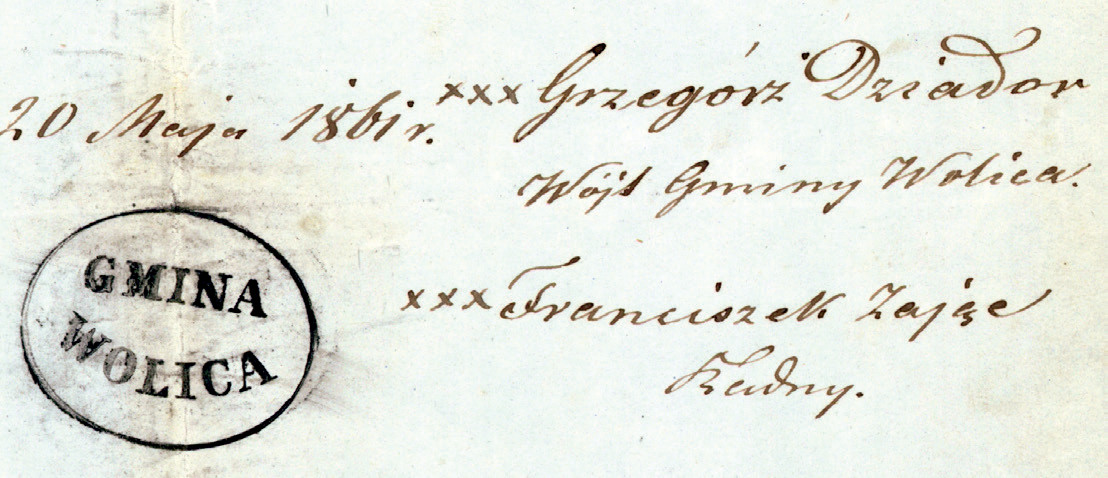 20 Maja 1861 r. xxx Grzegórz Dziador
Wójt Gminy Wolica.
xxx Franciszek Zając
Radny.
GMINA
WOLICA